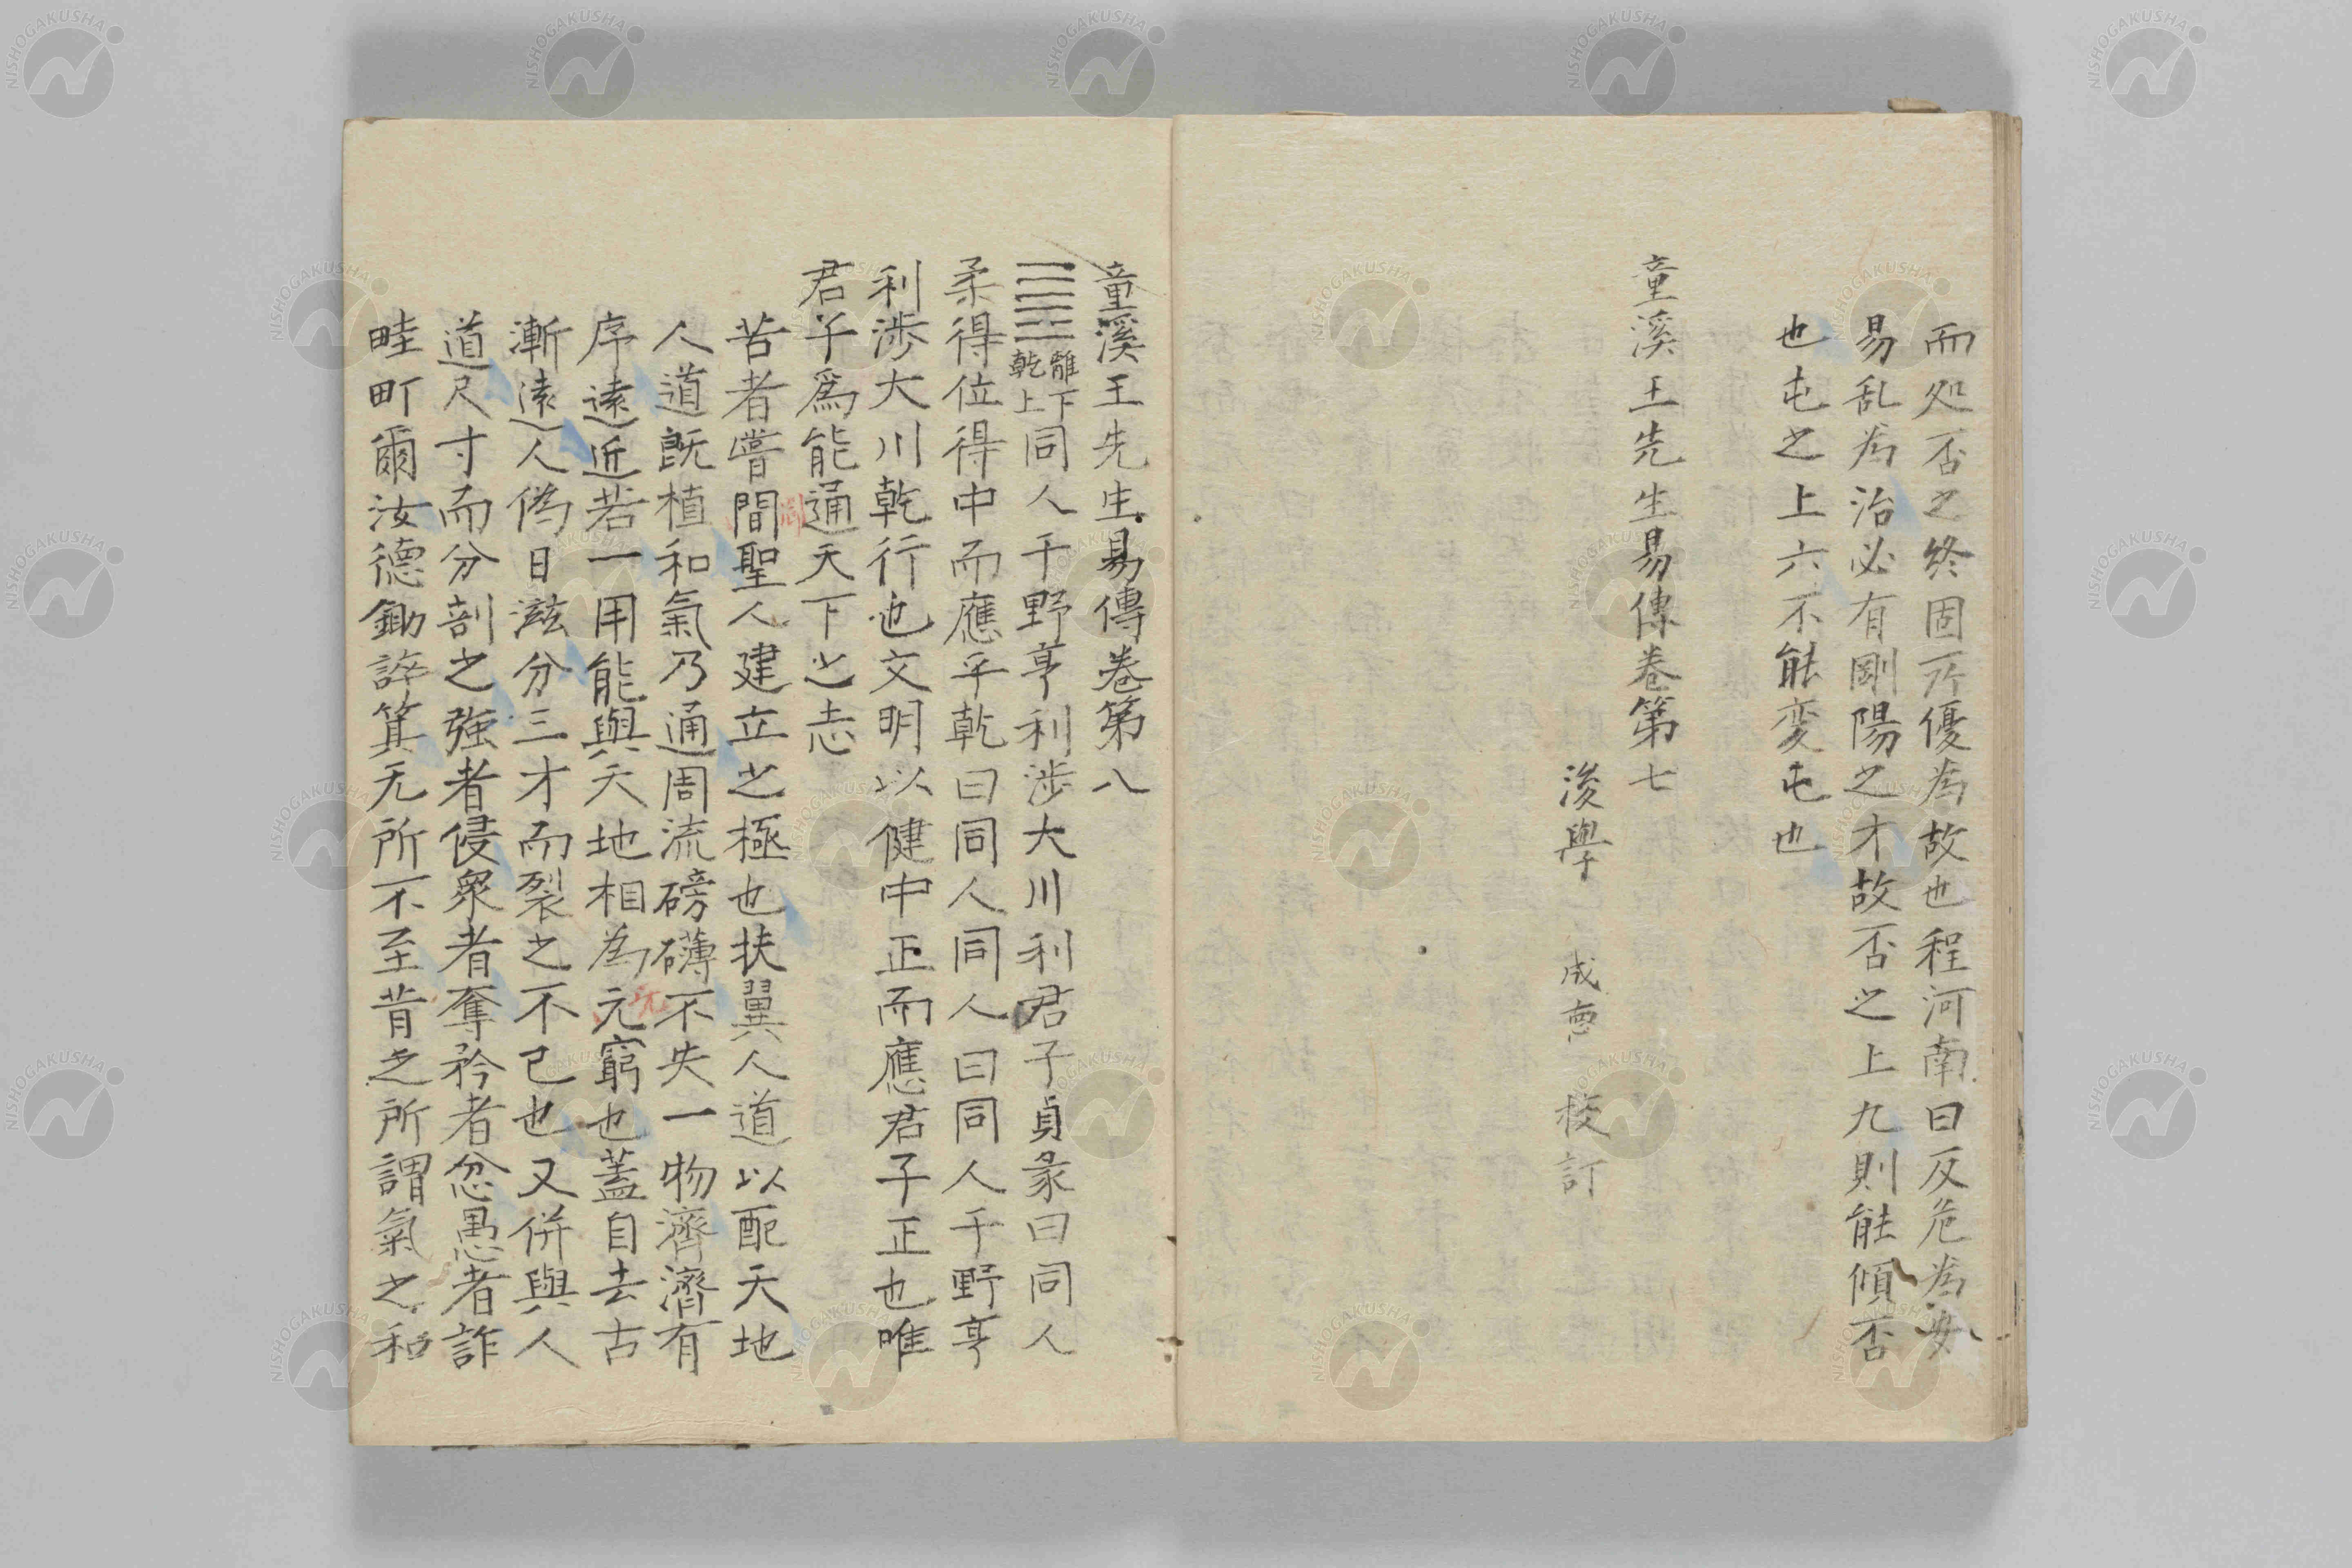 而処否之終固所優為故也程河南曰反危為安
易乱為治必有剛陽之才故否之上九則能傾否
也屯之上六不能変屯也
童溪王先生易傳卷第七
後學 成 校訂
童溪王先生易傳卷第八
䷌離下乾上同人于野亨利涉大川利君子貞彖曰同人
柔得位得中而應乎乾曰同人同人曰同人于野亨
利涉大川乾行也文明以健中正而應君子正也唯
君子爲能通天下之志
苦者嘗間聖人建立之極也扶翼人道以配天地
澗
人道既植和氣乃通周流磅礴不失一物濟濟有
序遠近若一用能與天地相為元窮也蓋自去古
无
漸遠人偽日滋分三才而裂之不已也又併與人
道尺寸而分剖之強者侵衆者奪矜者忿愚者詐
畦町爾汝德鋤誶箕无所不至昔之所謂氣之和
NISHOGAKUSHA